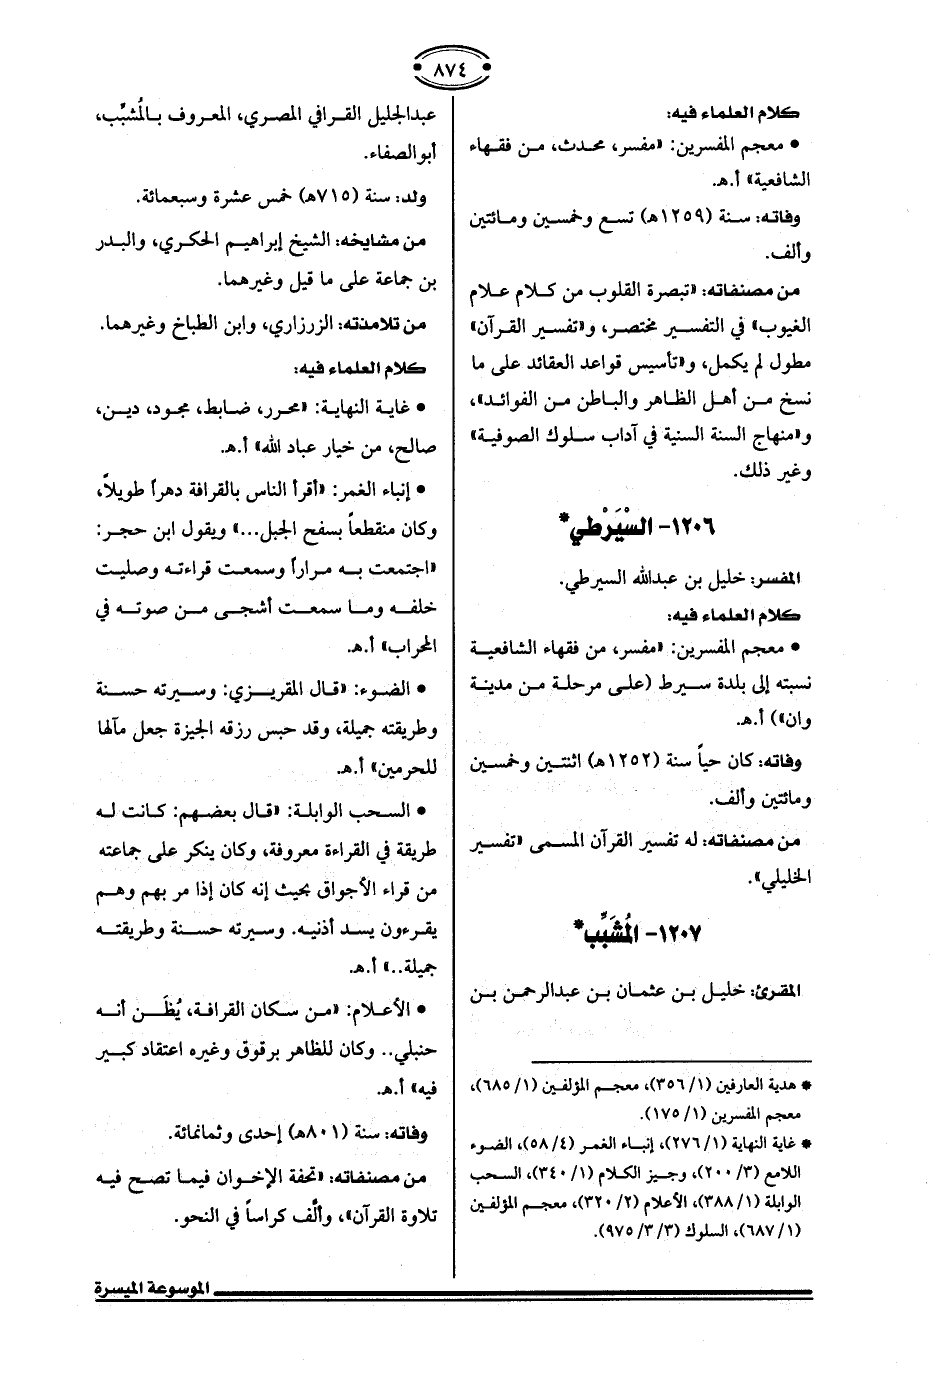 ٨٧٤
كلام العلماء فيه:
• معجم المفسرين: «مفسر، محدث، من فقهاء
الشافعية» أ.هـ.
وفاته: سنة (١٢٥٩هـ) تسع وخمسين ومائتين
وألف.
من مصنفاته: «تبصرة القلوب من كلام علام
الغيوب» في التفسير مختصر، و«تفسير القرآن»
مطول لم يكمل، و«تأسيس قواعد العقائد على ما
نسخ من أهل الظاهر والباطن من الفوائد»،
و«منهاج السنة السنية في آداب سلوك الصوفية»
وغير ذلك.
١٢٠٦- السْيَرْطي*
المفسر: خليل بن عبدالله السيرطي.
كلام العلماء فيه:
• معجم المفسرين: «مفسر، من فقهاء الشافعية
نسبته إلى بلدة سيرط (على مرحلة من مدينة
وان)» أ.هـ.
وفاته: كان حياً سنة (١٢٥٢هـ) اثنتين وخمسين
ومائتين وألف.
من مصنفاته: له تفسير القرآن المسمى «تفسير
الخليلي».
١٢٠٧- المُشَبِّب*
المقرئ: خليل بن عثمان بن عبدالرحمن بن
* هدية العارفين (١/ ٣٥٦)، معجم المؤلفين (١/ ٦٨٥)،
معجم المفسرين (١/ ١٧٥).
* غاية النهاية (١/ ٢٧٦)، إنباء الغمر (٤/ ٥٨)، الضوء
اللامع (٣/ ٢٠٠)، وجيز الكلام (١/ ٣٤٠)، السحب
الوابلة (١/ ٣٨٨)، الأعلام (٢/ ٣٢٠)، معجم المؤلفين
(١/ ٦٨٧)، السلوك (٣/ ٣/ ٩٧٥).
عبدالجليل القرافي المصري، المعروف بالمُشبِّب،
أبو الصفاء.
ولد: سنة (٧١٥هـ) خمس عشرة وسبعمائة.
من مشايخه: الشيخ إبراهيم الحكري، والبدر
بن جماعة على ما قيل وغيرهما.
من تلامذته: الزرزاري، وابن الطباخ وغيرهما.
كلام العلماء فيه:
• غاية النهاية: «محرر، ضابط، مجود، دين،
صالح، من خيار عباد الله» أ.هـ.
• إنباء الغمر: «أقرأ الناس بالقرافة دهراً طويلاً،
وكان منقطعاً بسفح الجبل...» ويقول ابن حجر:
«اجتمعت به مراراً وسمعت قراءته وصليت
خلفه وما سمعت أشجى من صوته في
المحراب» أ.هـ.
• الضوء: «قال المقريزي: وسيرته حسنة
وطريقته جميلة، وقد حبس رزقه الجيزة جعل مآلها
للحرمين» أ.هـ.
• السحب الوابلة: «قال بعضهم: كانت له
طريقة في القراءة معروفة، وكان ينكر على جماعته
من قراء الأجواق بحيث إنه كان إذا مر بهم وهم
يقرءون يسد أذنيه. وسيرته حسنة وطريقته
جميلة..» أ.هـ.
• الأعلام: «من سكان القرافة، يُظَن أنه
حنبلي.. وكان للظاهر برقوق وغيره اعتقاد كبير
فيه» أ.هـ.
وفاته: سنة (٨٠١هـ) إحدى وثمانمائة.
من مصنفاته: «تحفة الإخوان فيما تصح فيه
تلاوة القرآن»، وألَّف كراساً في النحو.
الموسوعة الميسرة